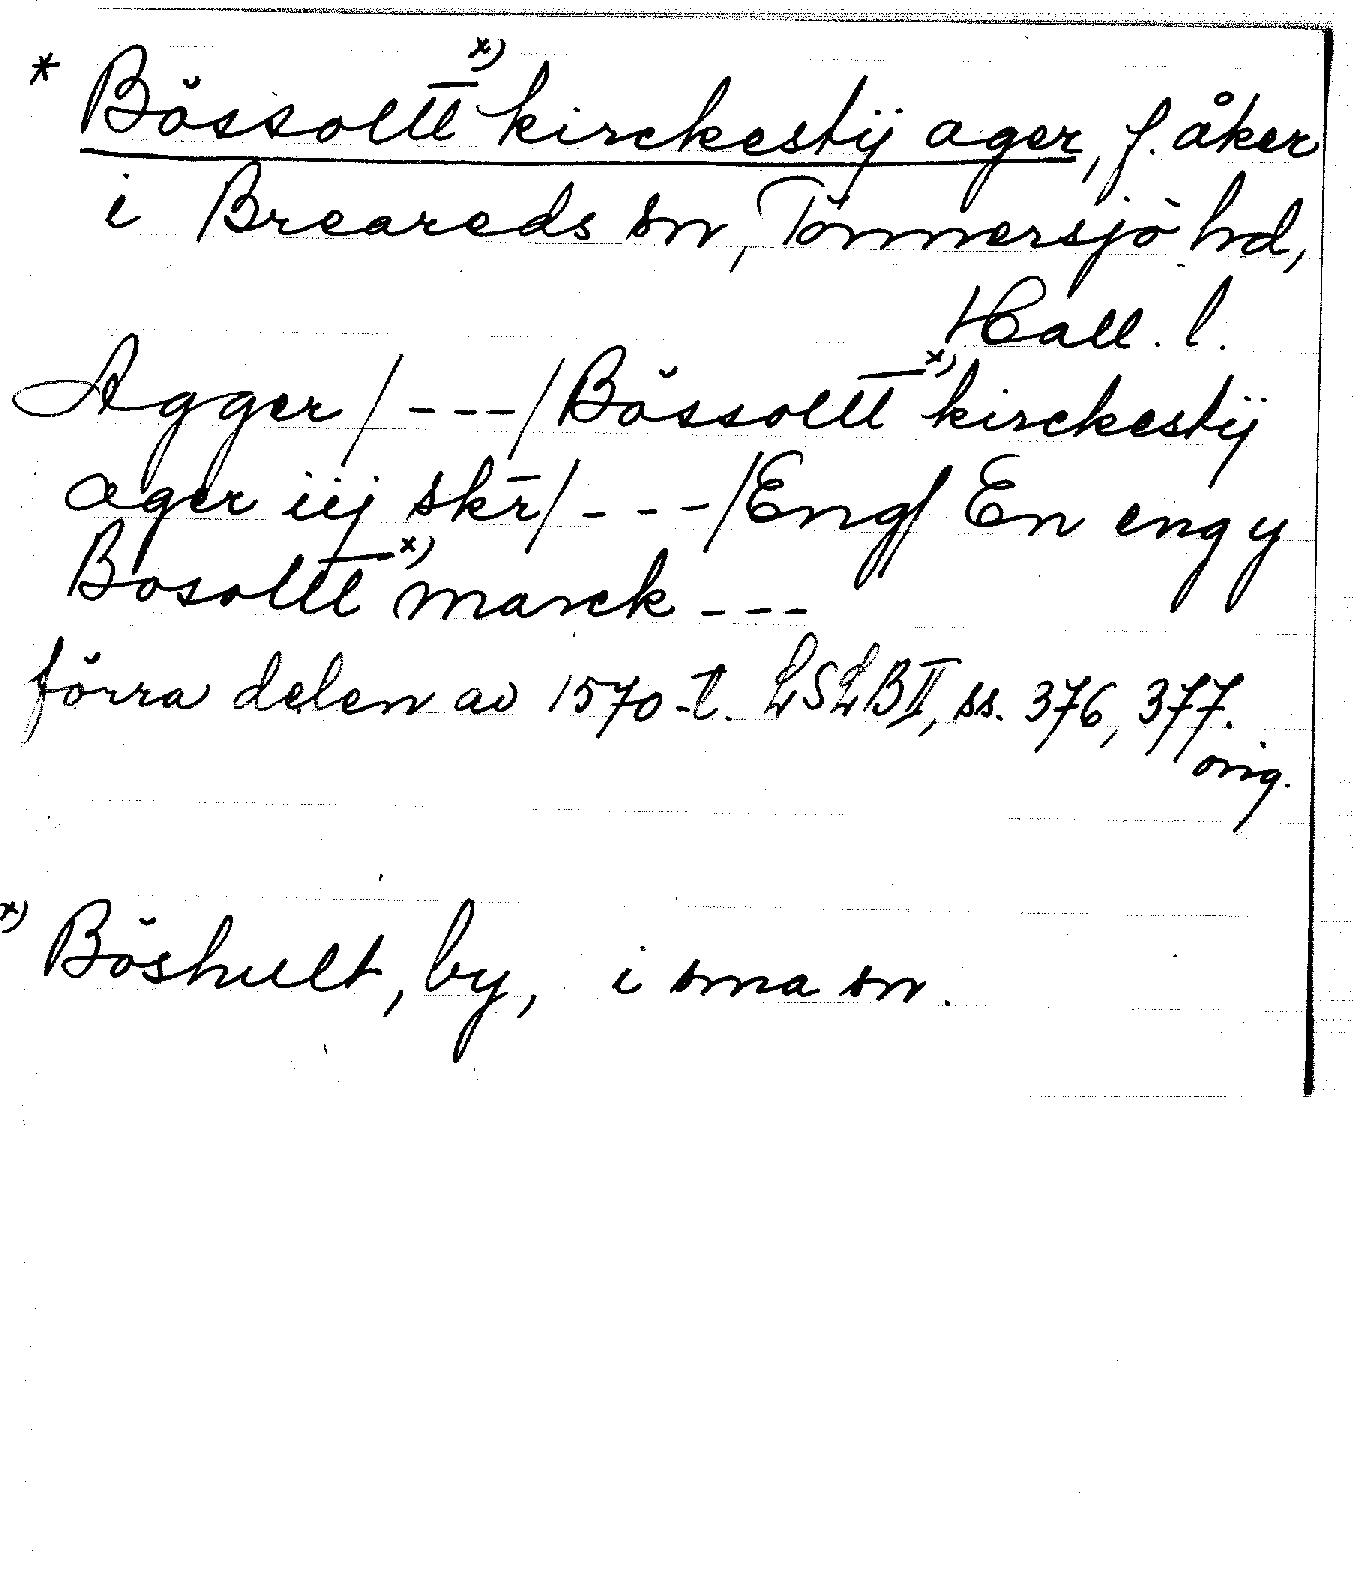 * Bössoltt x) kirckestÿ ager, f. åker
i Breareds sn, Tönnersjö hd,
Hall. l.
Agger / --- / Bössoltt x) kirckestÿ
ager iij skr̄ / --- / Eng / En eng y
Bosoltt x) marck ---
förra delen av 1570-t. LSLB II, ss. 376, 377.
orig.
x) Böshult, by, i sma sn.